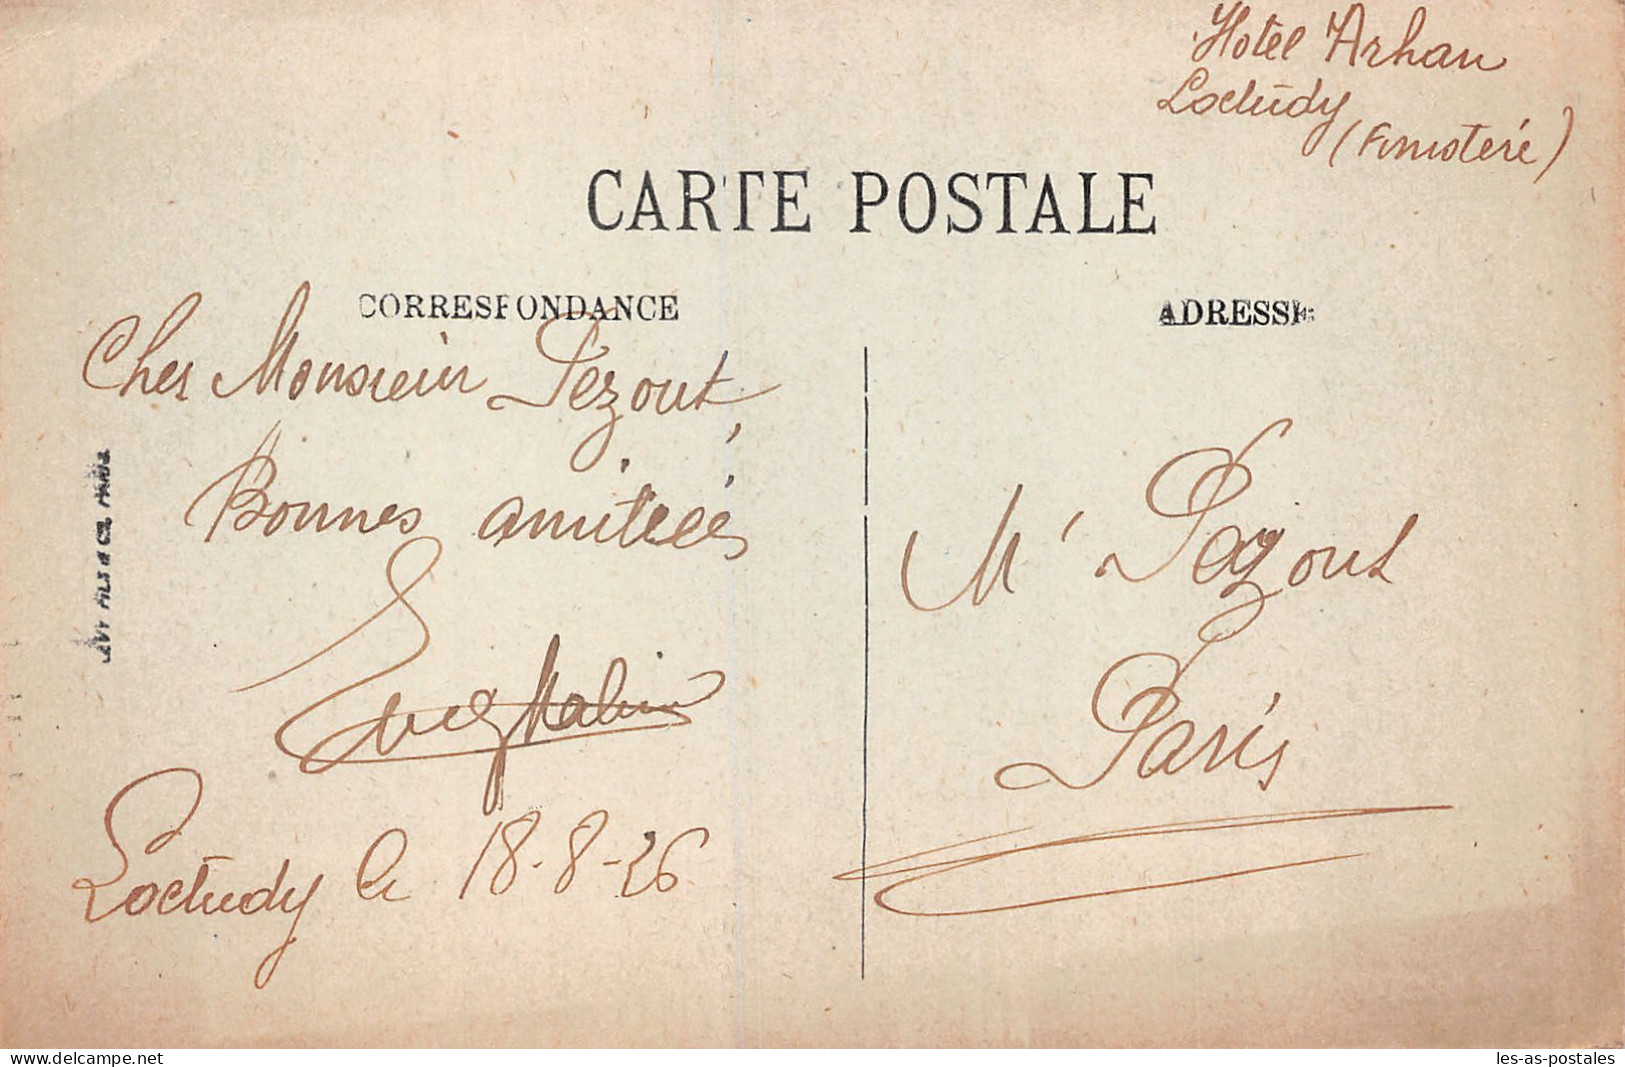 Hotel Arhan
Loctudy
(Finistère)
CARTE POSTALE
CORRESPONDANCE
ADRESSE
Cher Monsieur Pezout
Bonnes amitiées
Loctudy le 18-8-26
LEVY FILS & Cie, PARIS
Mr Pezout
Paris
www.delcampe.net
les-as-postales